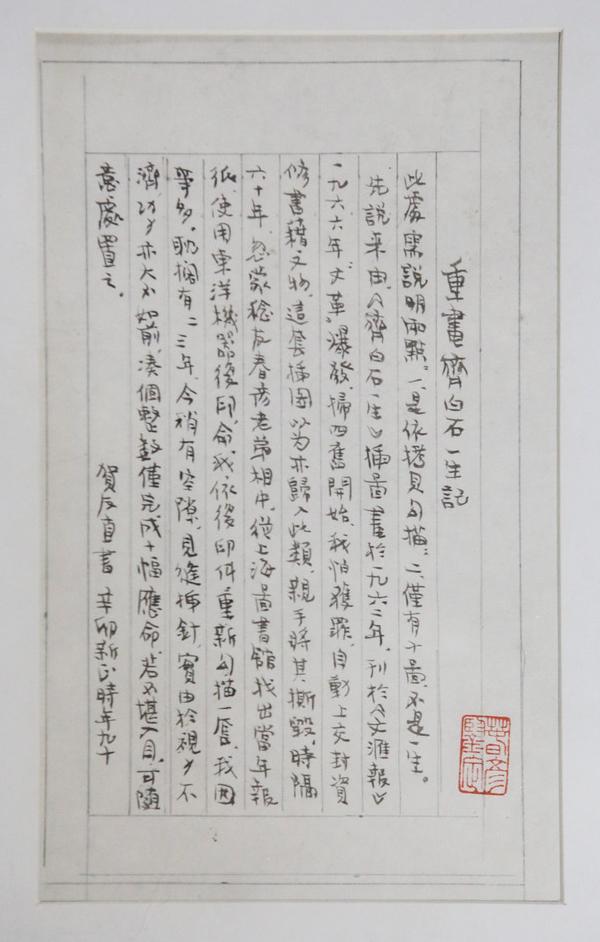 重畫齊白石一生記
此處需說明兩點。一、是依拷貝勾描。二、僅有十圖，不是一生。
先說來由，《齊白石一生》插圖畫於一九六二年，刊於《文滙報》
一九六六年"文革"爆發，掃四舊開始，我怕獲罪，自動上交封資
修書籍文物，這套插圖以为亦歸入此類，親手將其撕毀，時隔
六十年，忽蒙稔友春彥老弟相中，從上海圖書館找出當年報
紙，使用東洋機器復印，命我依復印件重新勾描一唇，我因
事多，耽擱有二三年，今稍有空隙，見縫插針，實由於視力不
濟，功力亦大不如前，湊個整數僅完成十幅應命，若不堪入目，可隨
意處置之。
賀友直書 辛卯新正時年九十